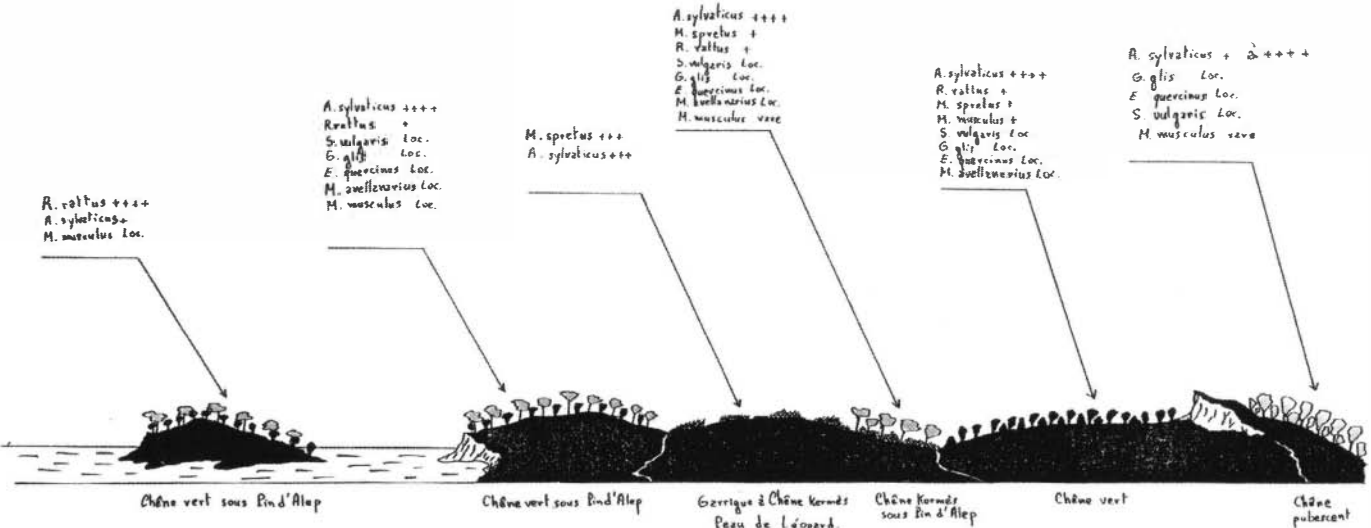 R. rattus ++++
A. sylvaticus+
M. musculus Loc.
A. sylvaticus ++++
R. rattus +
S. vulgaris Loc.
G. glis Loc.
E. quercinus Loc.
M. avellanarius Loc.
M. musculus Loc.
M. spretus +++
A. sylvaticus +++
A. sylvaticus ++++
M. spretus +
R. rattus +
S. vulgaris Loc.
G. glis Loc.
E quercinus Loc.
M. avellanarius Loc.
M. musculus rare
A. sylvaticus ++++
R. rattus +
M. spretus +
M. musculus +
S. vulgaris Loc
G. glis Loc.
E. quercinus Loc.
M. avellanarius Loc.
A. sylvaticus + à ++++
G. glis Loc.
E quercinus Loc.
S. vulgaris Loc.
M. musculus rare
Chêne vert sous Pin d'Alep
Chêne vert sous Pin d'Alep
Garrigue à Chêne Kermès
Peau de Léopard.
Chêne Kermès
sous Pin d'Alep
Chêne vert
Chêne
pubescent